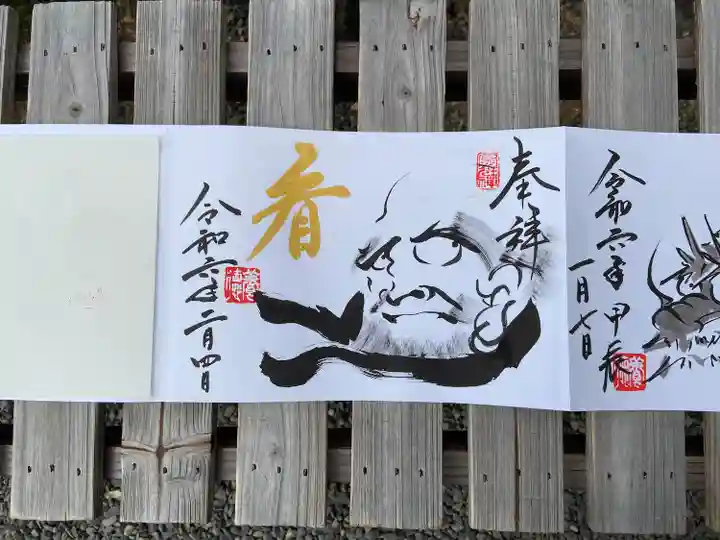 令和六年甲辰
一月七日
奉拝
看
令和六年二月四日